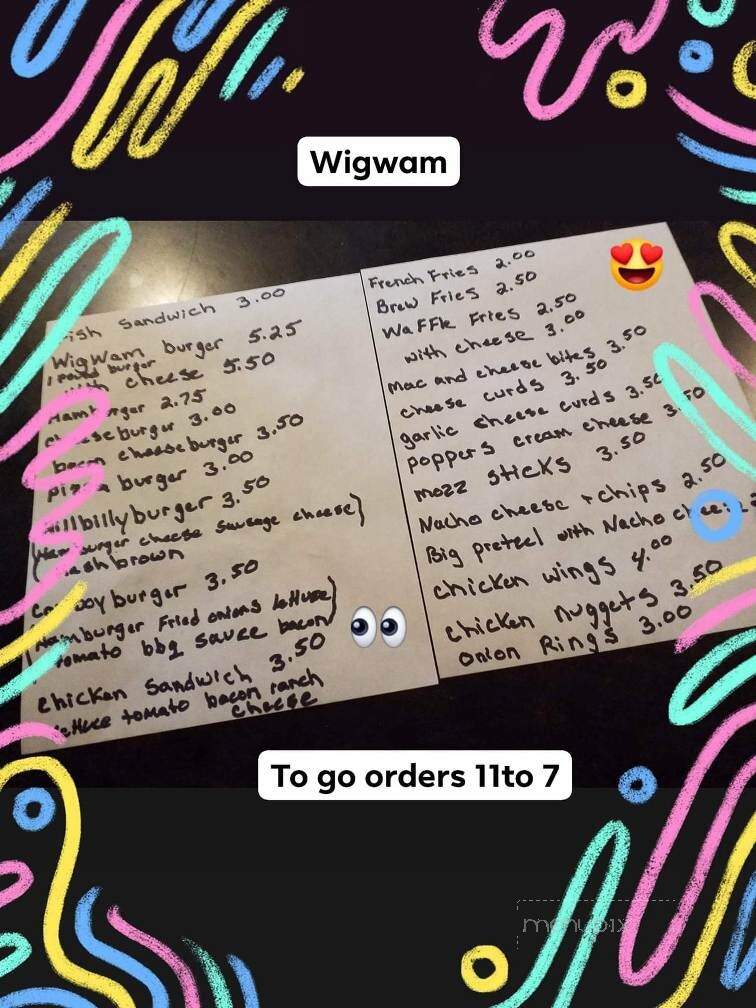 Wigwam
Fish Sandwich 3.00
WigWam burger 5.25
1 pound burger
with cheese 5.50
Hamburger 2.75
cheeseburger 3.00
bacon cheeseburger 3.50
pizza burger 3.00
Hillbillyburger 3.50
(Hamburger cheese Sausage cheese)
Hashbrown
Cowboyburger 3.50
Hamburger Fried onions lettuce
tomato bbq sauce bacon)
chicken Sandwich 3.50
lettuce tomato bacon ranch
cheese
French Fries 2.00
Brew Fries 2.50
WaFFle Fries 2.50
with cheese 3.00
mac and cheese bites 3.50
cheese curds 3.50
garlic cheese curds 3.50
poppers cream cheese 3.50
mozz sticks 3.50
Nacho cheese + chips 2.50
Big pretzel with Nacho
chicken wings 4.00
chicken nuggets 3.50
onion Rings 3.00
To go orders 11to 7
menupix